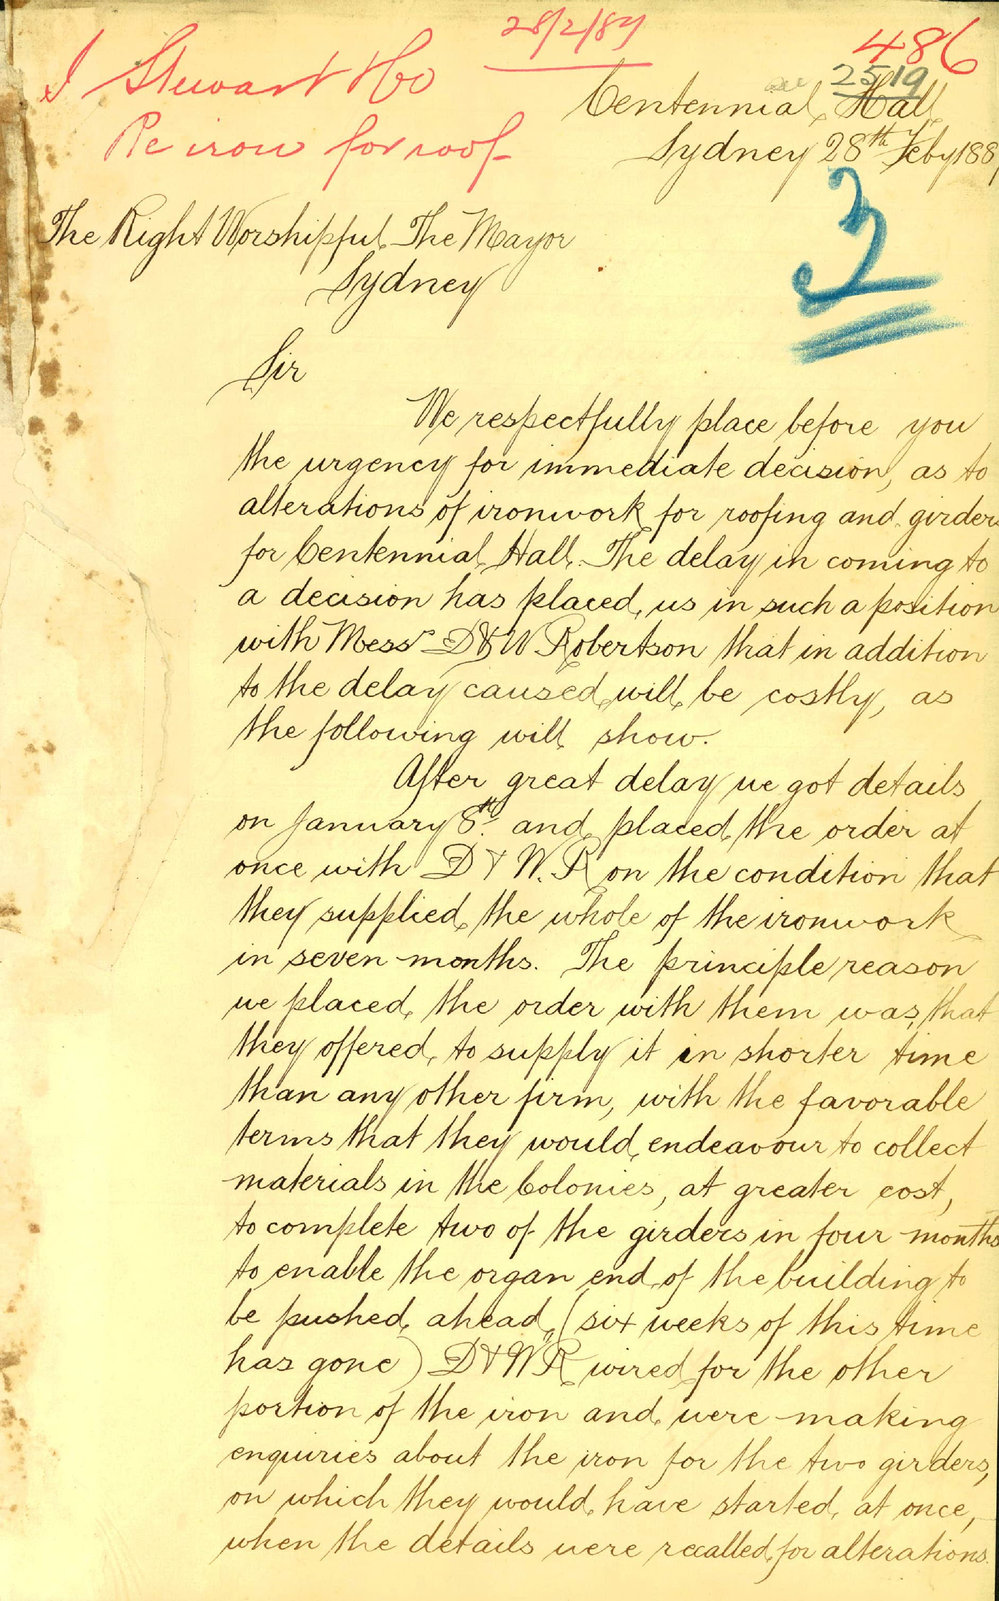 28/2/89
486
2519
J Stewart & Co
Re iron for roof
Centennial Hall
Sydney 28th Feby 188
The Right Worshipful The Mayor
Sydney
Sir
We respectfully place before you
the urgency for immediate decision, as to
alterations of ironwork for roofing and girders
for Centennial Hall. The delay in coming to
a decision has placed us in such a position
with Messrs D & W Robertson that in addition
to the delay caused will be costly, as
the following will show.
After great delay we got details
on January 8th. and placed the order at
once with D & W. R on the condition that
they supplied the whole of the ironwork
in seven months. The principle reason
we placed the order with them was that
they offered to supply it in shorter time
than any other firm, with the favorable
terms that they would endeavour to collect
materials in the Colonies, at greater cost,
to complete two of the girders in four months
to enable the organ end of the building to
be pushed ahead, (six weeks of this time
has gone) D & W R wired for the other
portion of the iron and were making
enquiries about the iron for the two girders,
on which they would have started at once,
when the details were recalled for alterations.